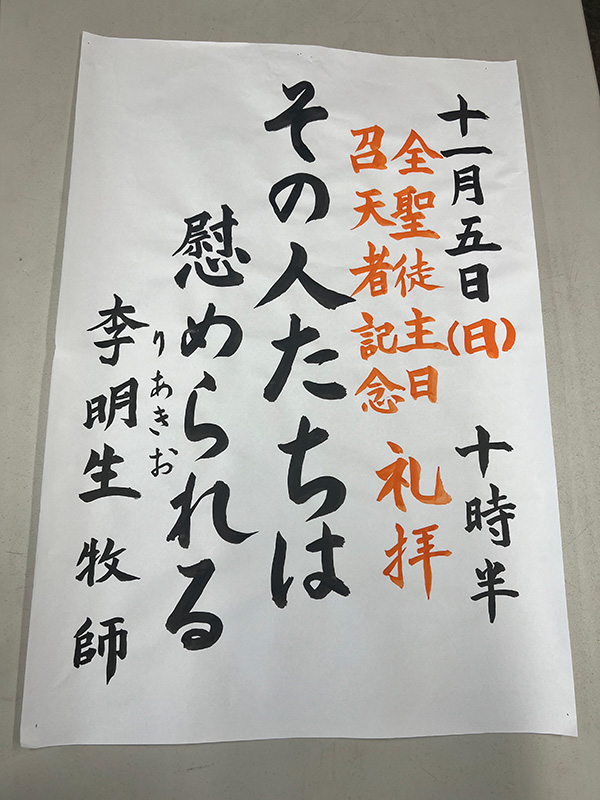 十一月五日(日) 十時半
全聖徒主日
召天者記念
礼拝
その人たちは
慰められる
りあきお
李明生 牧師